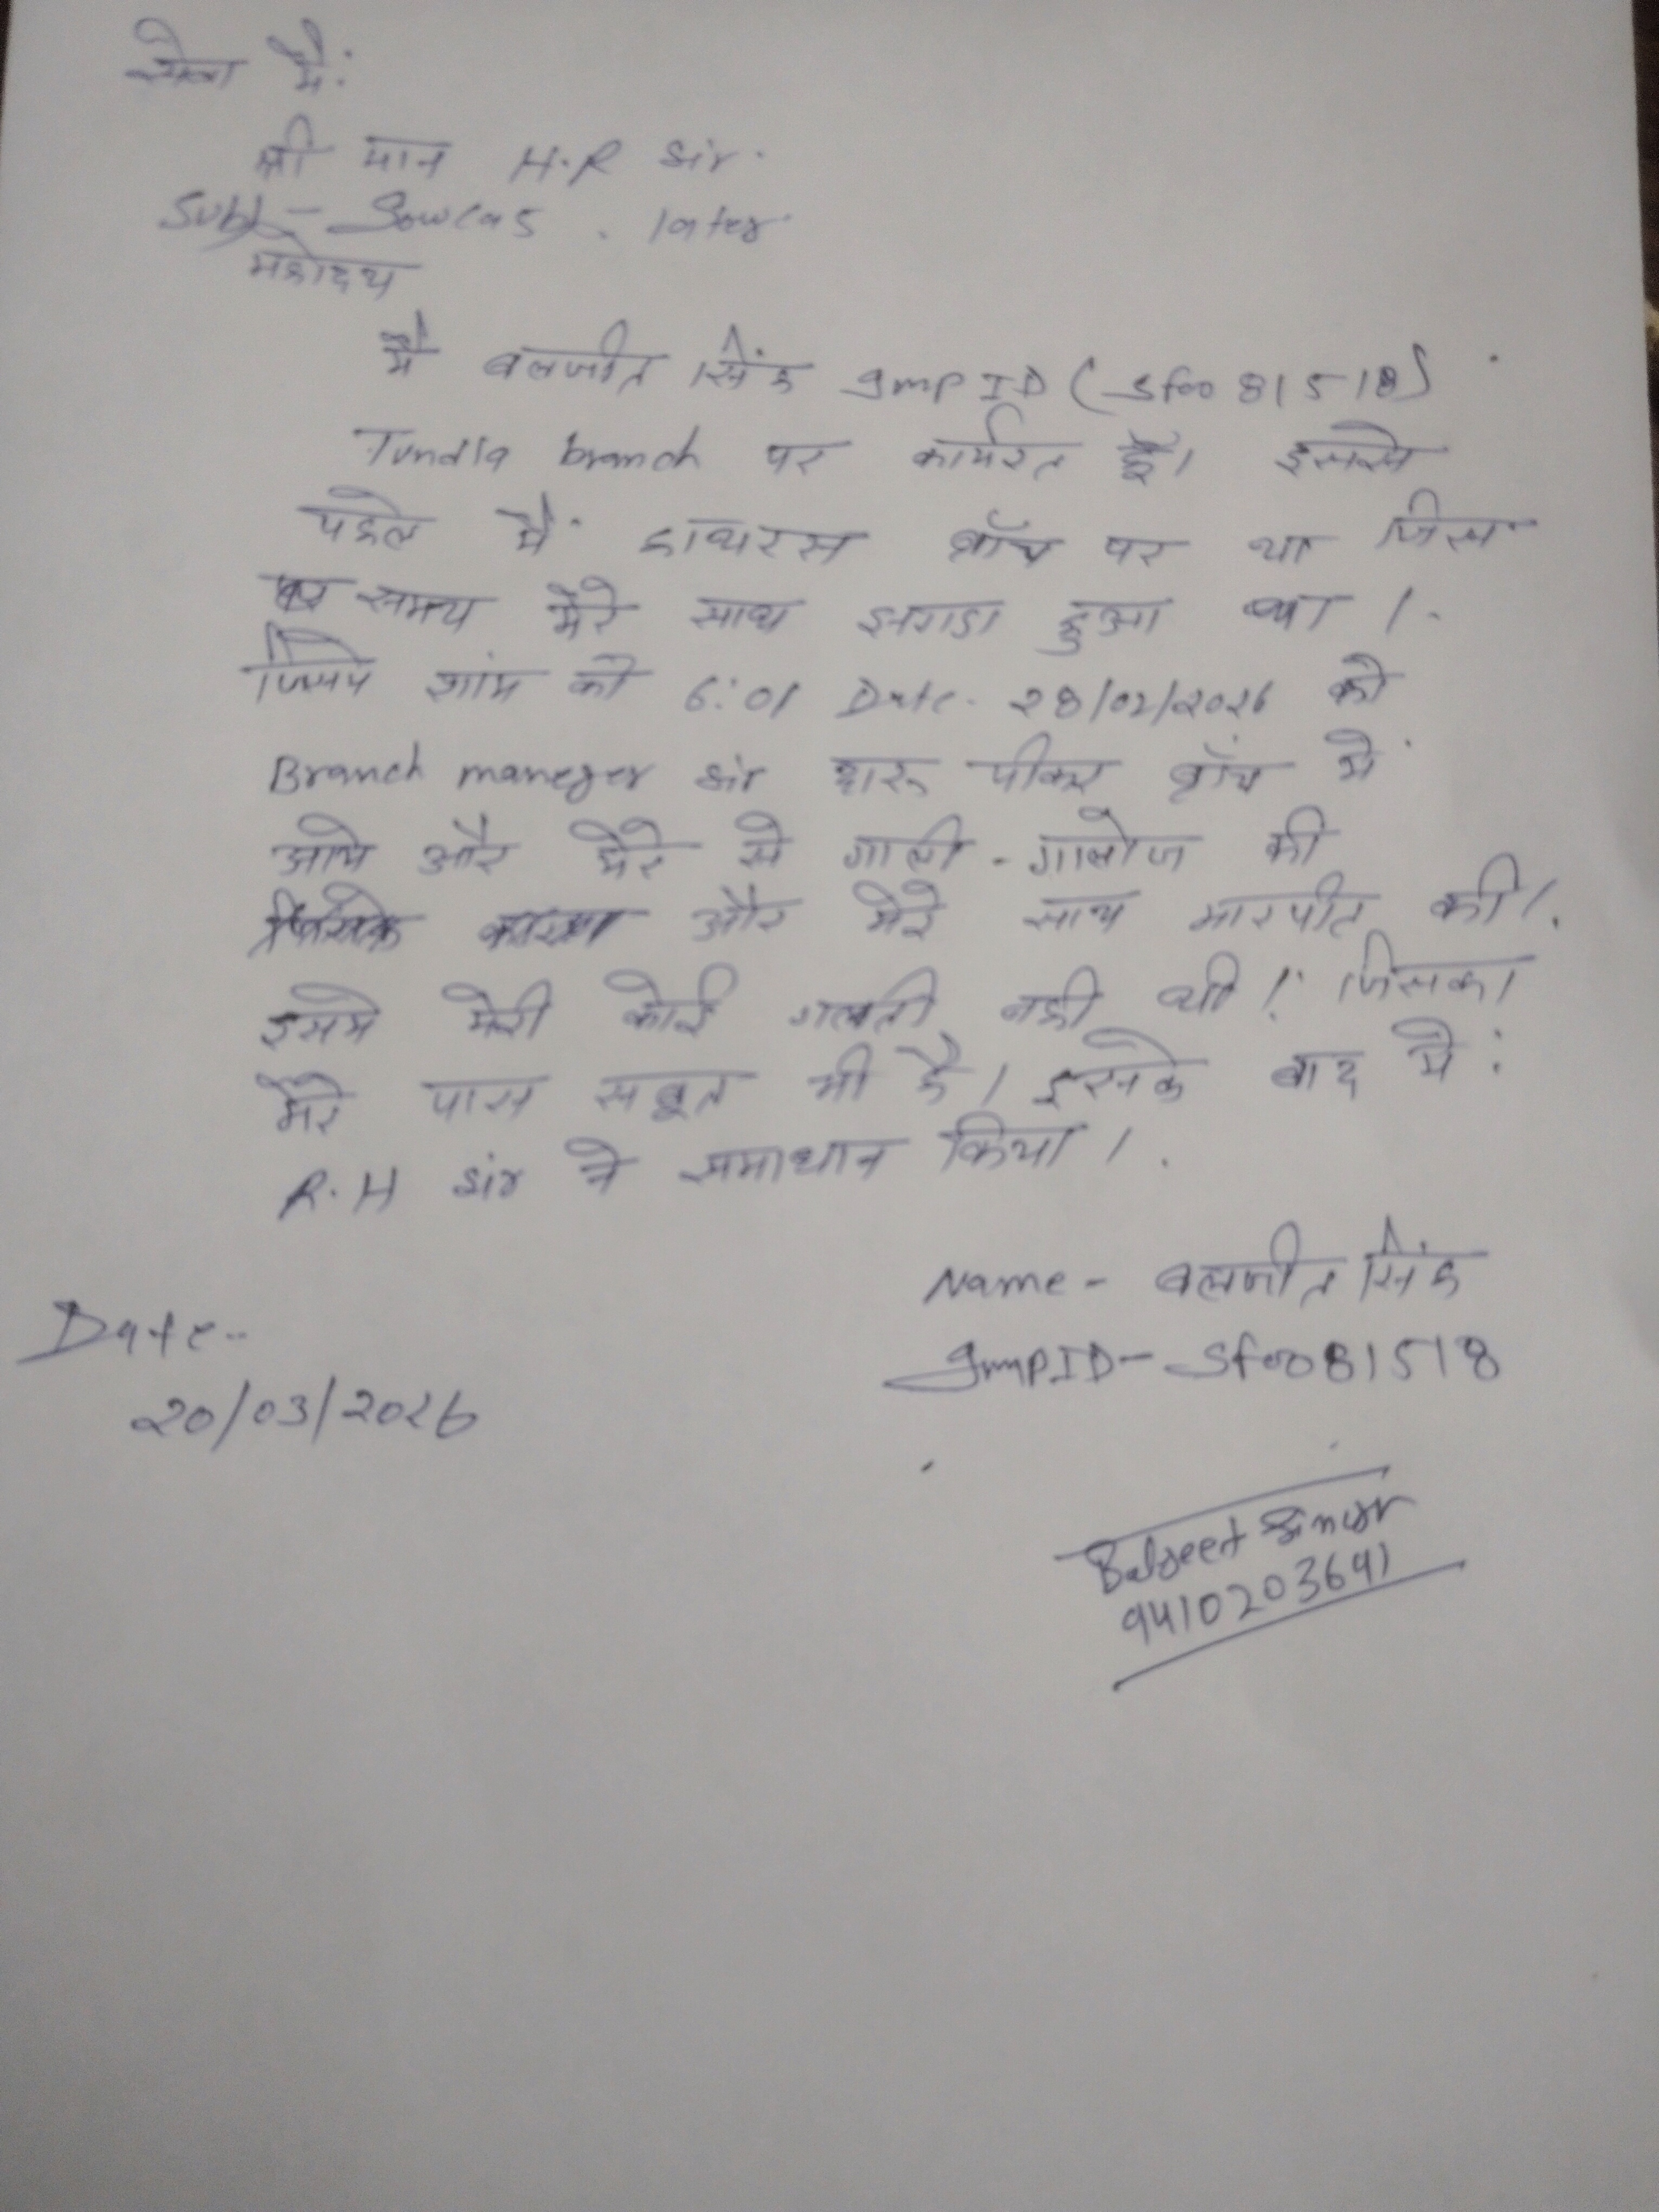 सेवा में:
श्री मान H.R sir.
Sub - Sowcas. later
महोदय
मैं बलजीत सिंह EmpID (Sf0081518)
Tundla branch पर कार्यरत हूँ। इससे
पहले मैं हाथरस ब्रॉंच पर था जिस
समय मेरे साथ झगडा हुआ था।
जिसमे शांम को 6:01 Date. 28/02/2026 को
Branch maneger sir दारू पीकर ब्रॉंच में
आये और मेरे से गाली-गालोज की
और मेरे साथ मारपीट की।
इसमे मेरी कोई गलती नही थी। जिसका
मेरे पास सबूत भी है। इसके बाद में:
R.H sir ने समाधान किया।
Name - बलजीत सिंह
EmpID - Sf0081518
Date -
20/03/2026
Baljeet
9410203641